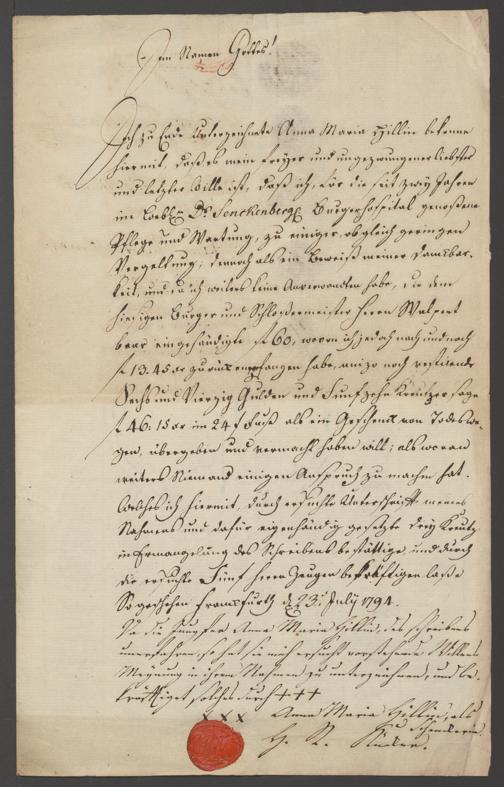 Im Namen Gottes!
Ich zu Ende Unterzeichnete Anna Maria Hillin bekenne
hiermit, daß es mein freyer und ungezwungener liebster
und letzter Wille ist, daß ich, für die seit zwey Jahren
im Loebl. Dr. Senckenberg. Burgerhospital genoßene
Pflege und Wartung, zu einiger, obgleich geringen
Vergeltung; dennoch als ein Beweiß meiner Dankbar-
keit, und, da ich weiters keine Anverwandten habe, die dem
hiesigen Burger und Schlossermeister Herrn Walpert
baar eingehändigte f 60, wovon ich jedoch nach und nach
f 13.45 xr zurück empfangen habe, anizo noch restirende
Sechs und Vierzig Gulden und Funfzehn Kreutzer sage
f 46:15 xr im 24 f Fuß als ein Geschenk von Todeswe-
gen, übergeben und vermacht haben will; als woran
weiters Niemand einigen Anspruch zu machen hat.
Welches ich hiermit, durch ersuchte Unterschrifft meines
Nahmens und dafür eigenhändig gesetzte drey Kreutz
in Ermangelung des Schreibens bestättige, und durch
die ersuchte Fünf Herrn Zeugen bekräftigen laße
So geschehen Franckfurth d. 23t. July 1794.
Da die Jungfer Anna Maria Hillin, des schreibens
unerfahren, so hat sie mich ersucht vorstehende Willens
Meynung in ihrem Nahmen zu unterzeichnen, und be-
kräfftiget solches durch +++
x x x Anna Maria Hillin, als
Schenkerin.
H. R.